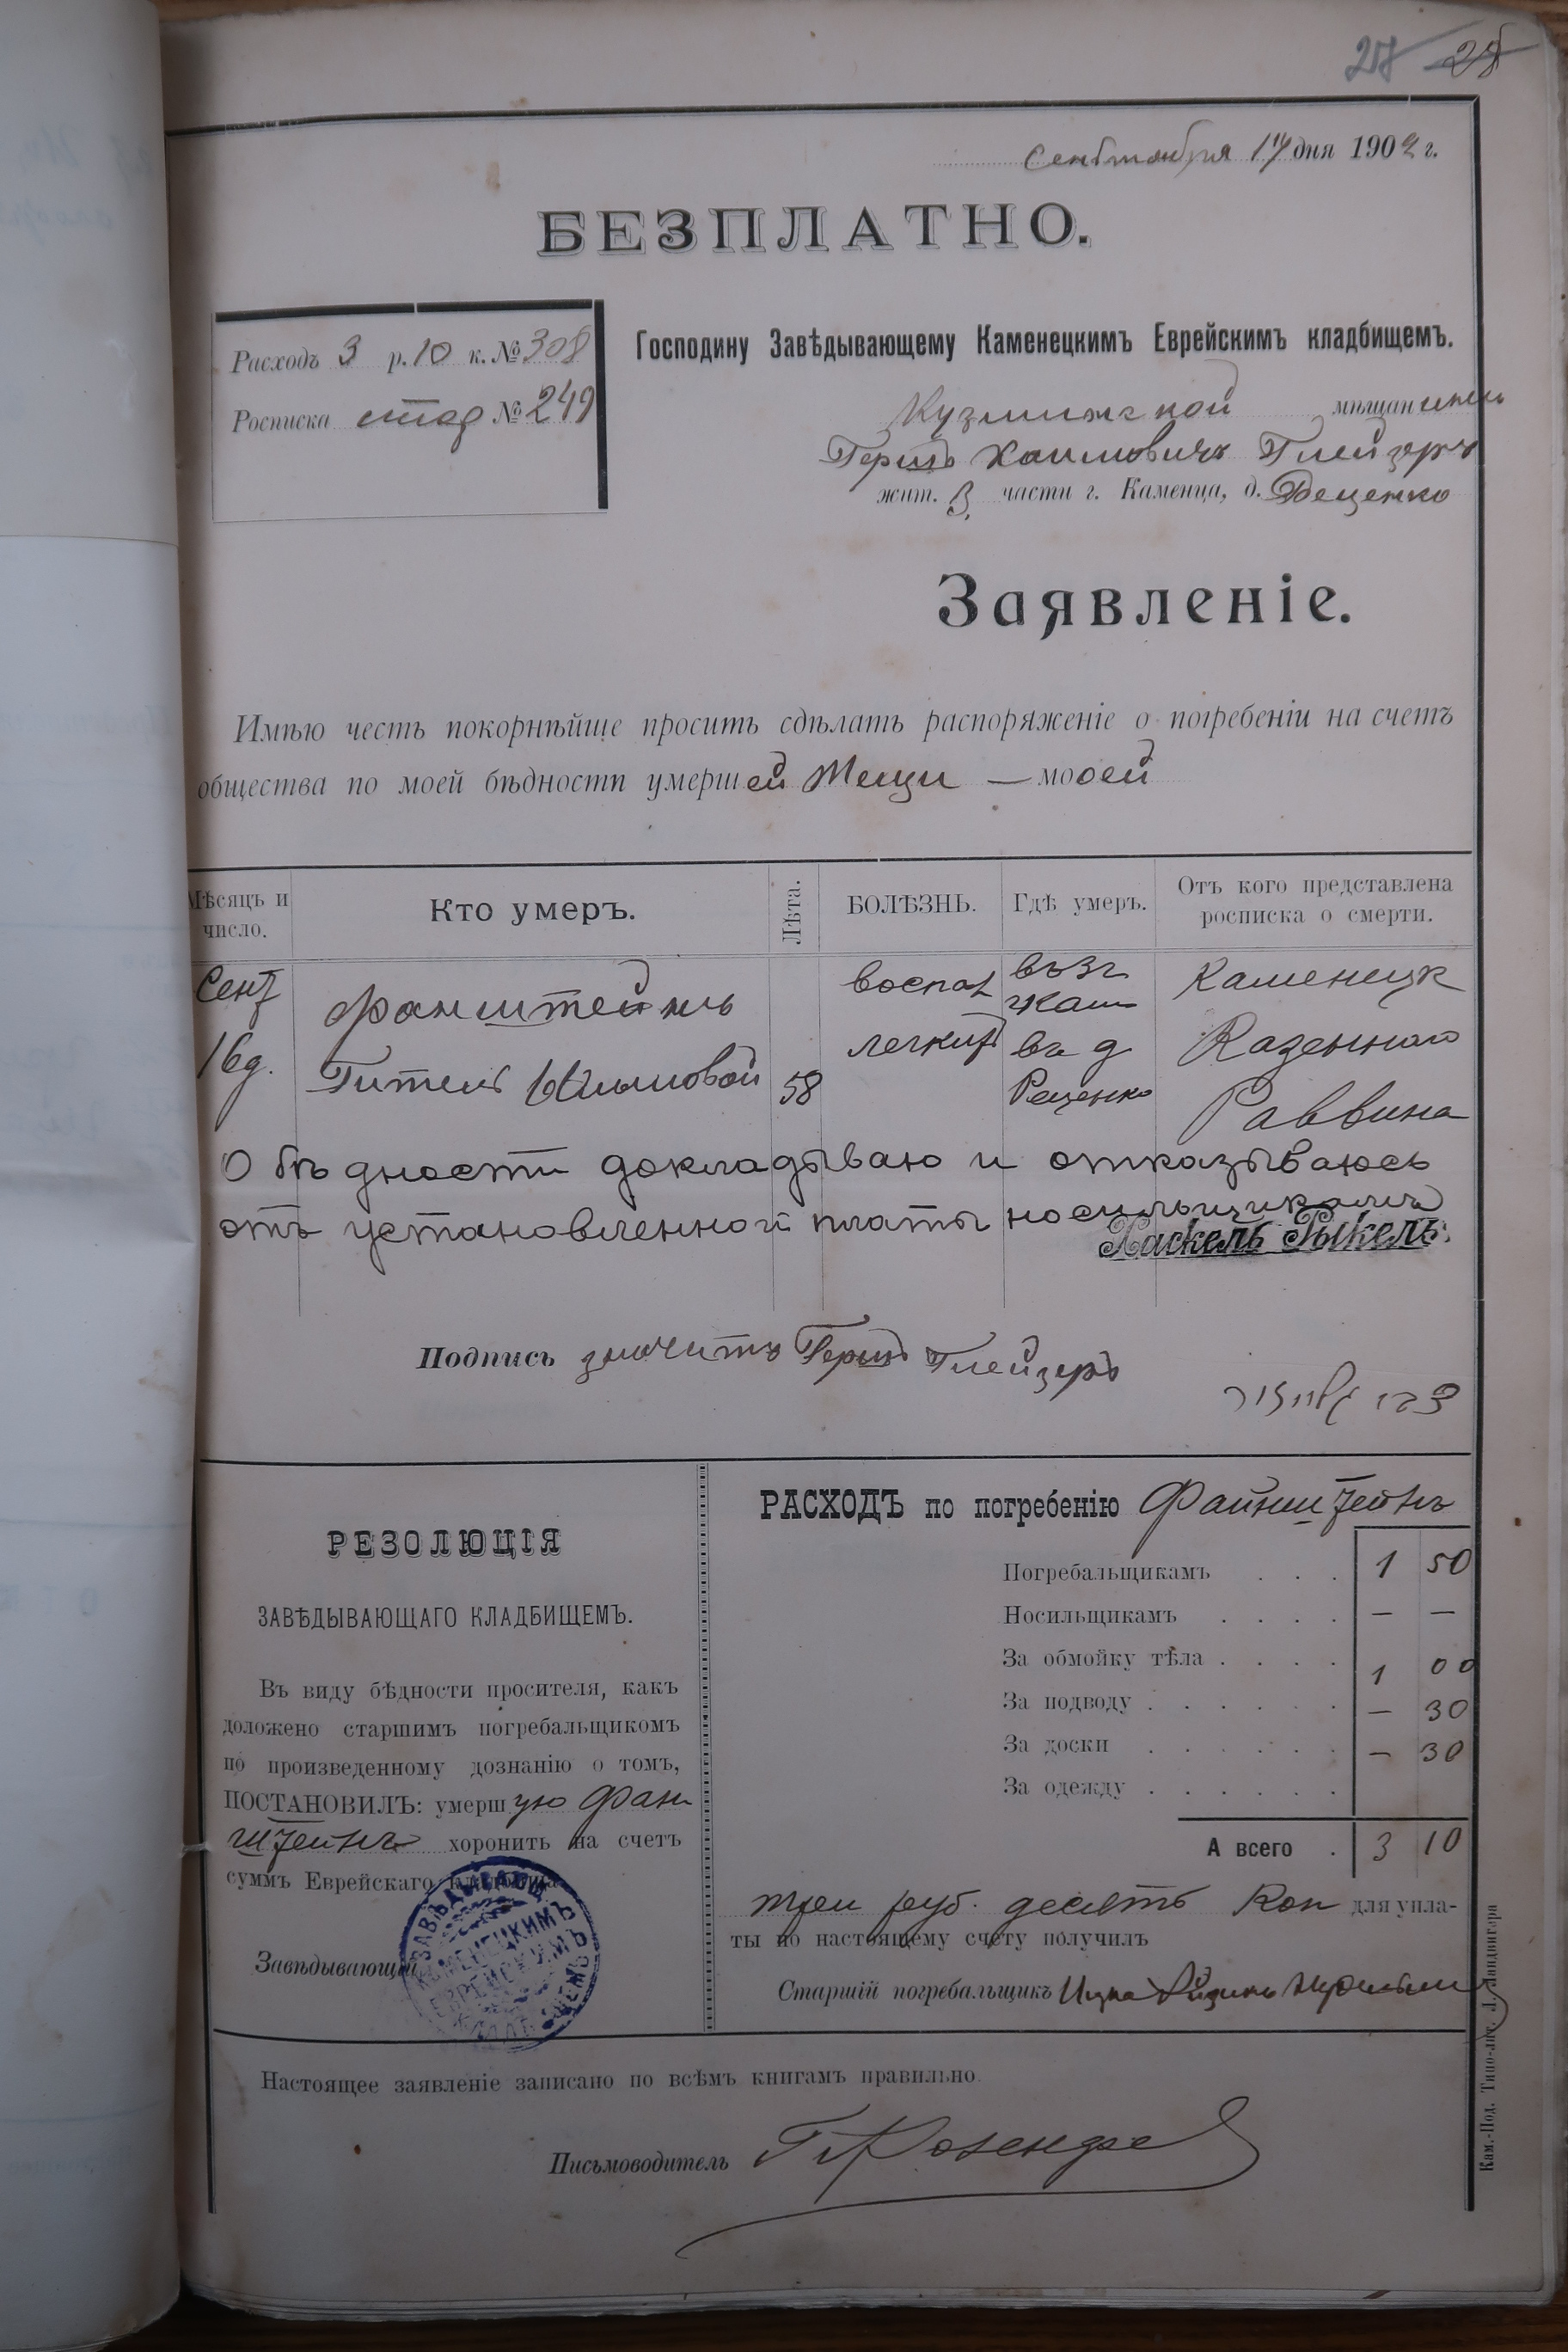 28
Сентября 17 дня 1902 г.
БЕЗПЛАТНО.
Расходъ 3 р. 10 к. № 308
Росписка стар № 249
Господину Завѣдывающему Каменецкимъ Еврейскимъ кладбищемъ.
мѣщанинъ
Гершъ Хаимовичъ Глейзеръ
жит. 3, части г. Каменца, д. Реценко
Заявленіе.
Имѣю честь покорнѣйше просить сдѣлать распоряженіе о погребеніи на счетъ
общества по моей бѣдности умершей Тещи — моей
Мѣсяцъ и число.
Кто умеръ.
Лѣта.
БОЛѢЗНЬ.
Гдѣ умеръ.
Отъ кого представлена росписка о смерти.
Сент
16 д.
Фанштейнъ
Гитель
58
воспал
легкихъ
въ д
Реценко
Каменецк
Казеннаго
Раввина
О бѣдности докладываю и отказываюсь
отъ установленной платы носильщикамъ
Хаскель Рыкель
Подпись значитъ Герш Глейзеръ
РЕЗОЛЮЦІЯ
ЗАВѢДЫВАЮЩАГО КЛАДБИЩЕМЪ.
Въ виду бѣдности просителя, какъ
доложено старшимъ погребальщикомъ
по произведенному дознанію о томъ,
ПОСТАНОВИЛЪ: умершую Фан
штейнъ хоронить на счетъ
суммъ Еврейскаго кладбища
Завѣдывающій
ЗАВѢДЫВАЮЩ
КАМЕНЕЦКИМЪ
ЕВРЕЙСКИМЪ
РАСХОДЪ по погребенію Файнштейнъ
Погребальщикамъ . . . 1 50
Носильщикамъ . . . . — —
За обмойку тѣла . . . . 1 00
За подводу . . . . . . — 30
За доски . . . . . . — 30
За одежду . . . . . .
А всего . 3 10
три руб. десять Коп для упла-
ты по настоящему счету получилъ
Старшій погребальщикъ
Настоящее заявленіе записано по всѣмъ книгамъ правильно.
Письмоводитель
Кам.-Под. Типо-лит. Л. Ландвигера